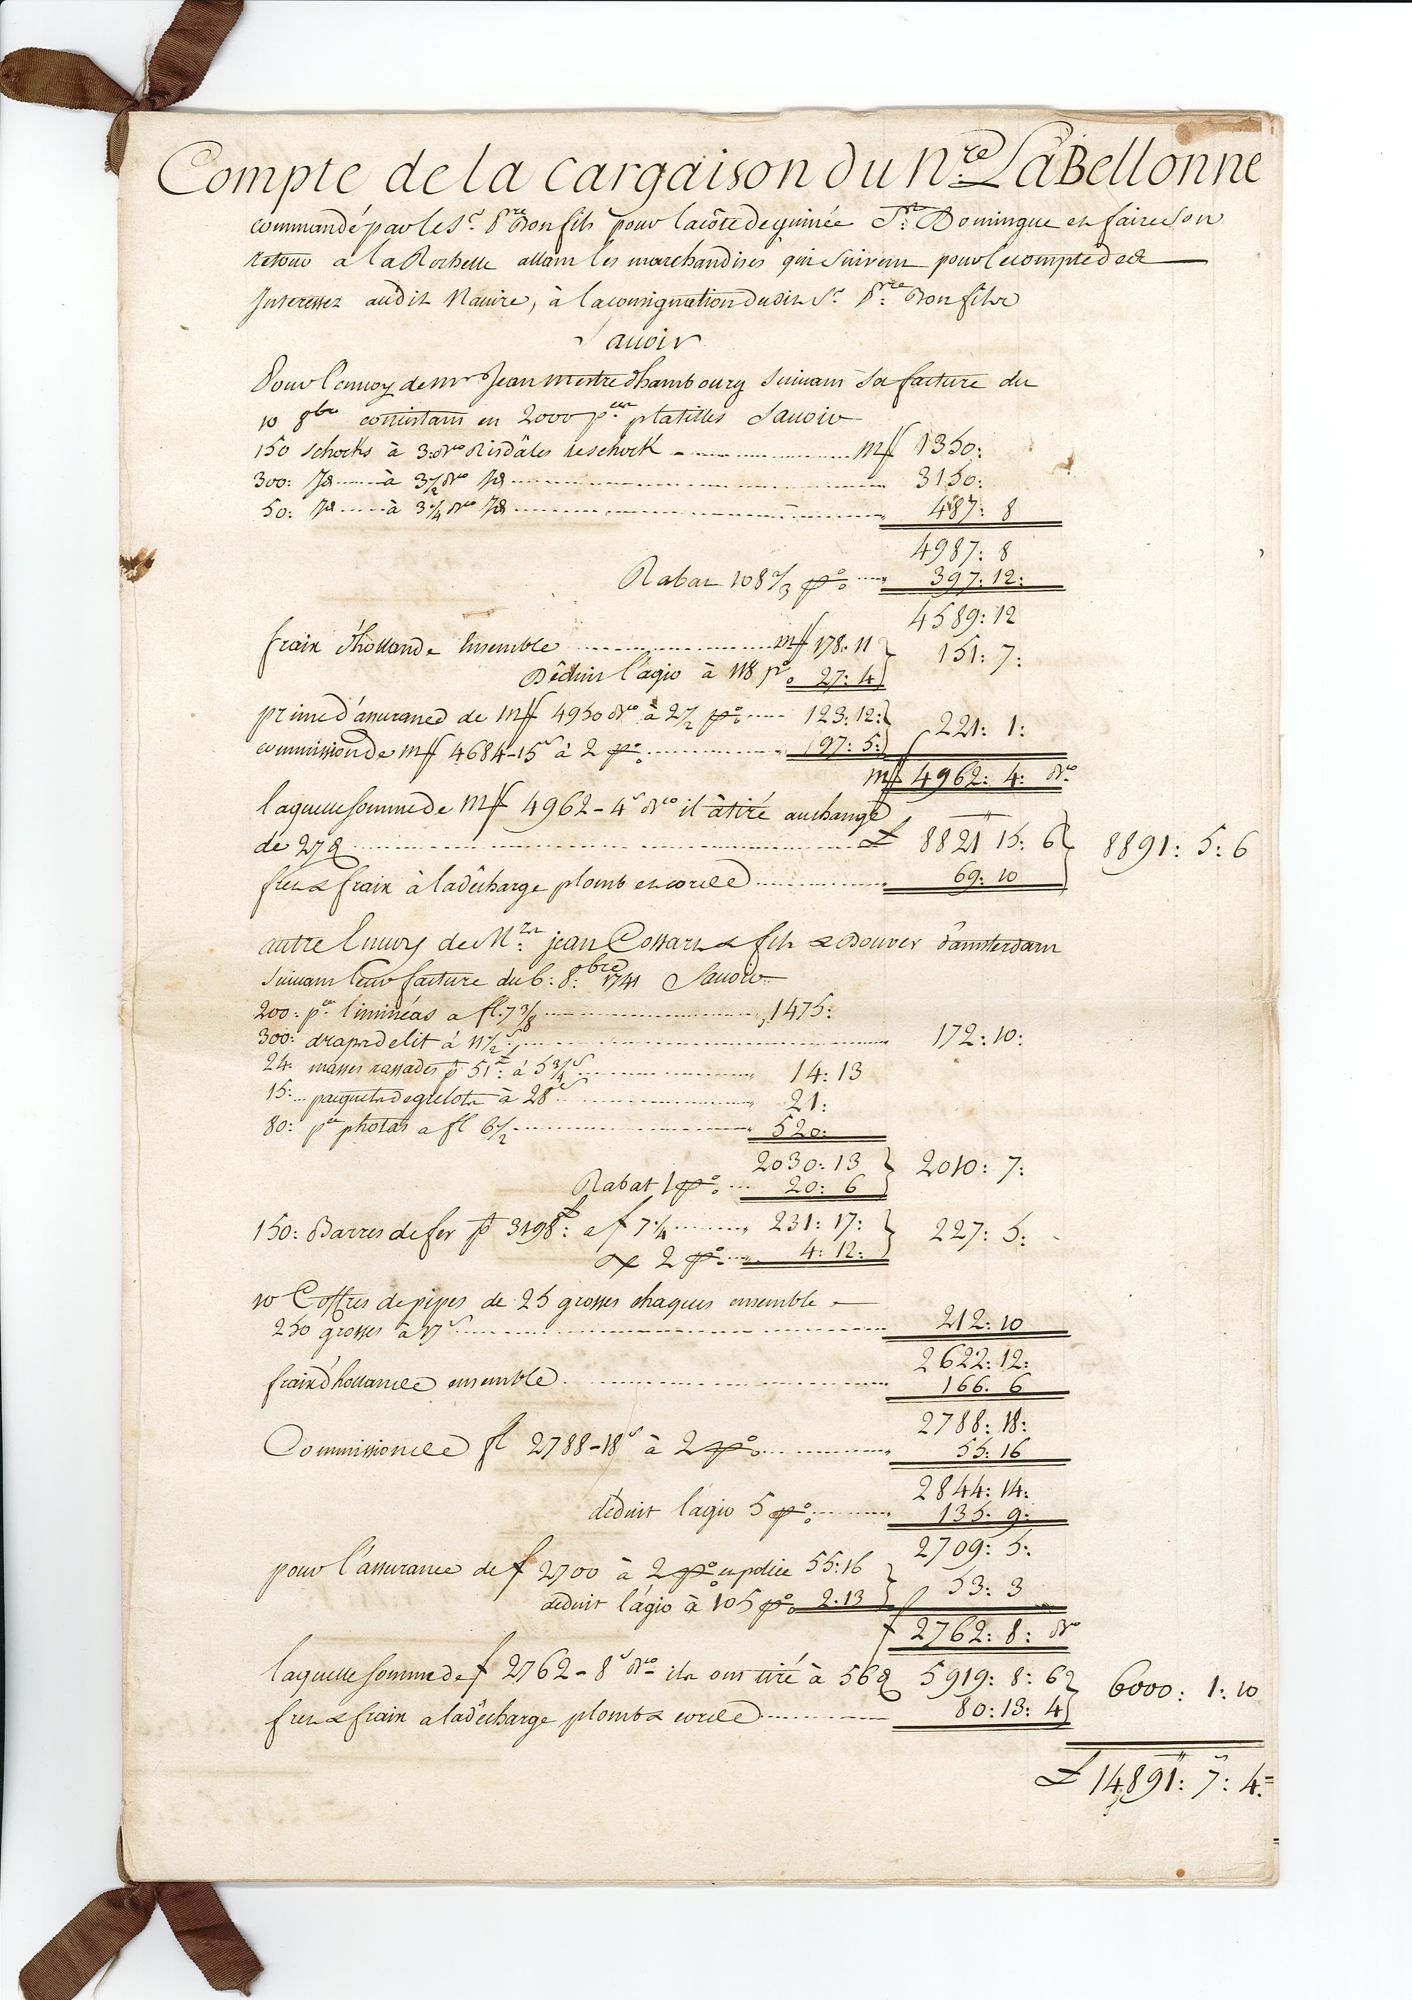 Compte de la cargaison du N.re La Bellonne
commandé par le S.r P.re Bonfils pour la côte de guinée S.t Domingue et faire son
retour a la Rochelle allant les marchandises qui suivent pour le compte des
Interessez audit Navire, à la consignation dudit S.r P.re Bonfils
Sauoir
Pour l'enuoy de mr Jean mestre d'hambourg suivant sa facture du
10 8bre consistant en 2000 p.ces platilles Sauoir
150 schocks à 3: Bco Risdâles le schock m𝑓 1350:
300: Id à 3 1/2 Bco Id 3150:
50: Id à 3 1/4 Bco Id 487: 8
4987: 8
Rabat 108 2/3 p%o 397: 12:
4589: 12
fraix d'hollande Ensemble m𝑓 178. 11 } 151: 7:
Déduit l'agio à 118 p%o 27: 4
prime d'assurance de m𝑓 4950 Bco à 2 1/2 p%o 123: 12: } 221: 1:
commission de m𝑓 4684-15s à 2 p%o 97: 5:
m𝑓 4962: 4: Bco
laquelle somme de m𝑓 4962-4s Bco il à tiré au change
de 27 8 ₶ 8821 15: 6 } 8891: 5: 6
fret & fraix à la décharge plomb et corde 69: 10
autre Enuoy de M.rs jean Cossart & fils & Bouver d'amsterdam
suivant leur facture du 6: 8bre 1741 Sauoir
200: p.ces liminéas a fl. 7 3/8 1475:
300: draps de lit à 11 1/2 s 172: 10:
24: masses rassades p 51: à 5 3/4 s 14: 13
15: paquets de grelots à 28s 21:
80: p.ces photas a fl 6 1/2 520:
2030: 13 } 2010: 7:
Rabat 1 p%o 20: 6
150: Barres de fer p 3198: a f 7 1/4 231: 17: } 227: 5:
2 p%o 4: 12:
10 Coffres de pipes de 25 grosses chaques ensemble
250 grosses à 17s 212: 10
2622: 12:
fraix d'hollande ensemble 166. 6
2788: 18:
Commission de fl 2788-18s à 2 p%o 55: 16
2844: 14:
déduit l'agio 5 p%o 135: 9:
2709: 5:
pour l'assurance de f 2700 à 2 p%o et police 55: 16 } 53: 3
déduit l'agio à 105 p%o 2. 13
f 2762: 8: Bco
laquelle somme de f 2762-8s Bco ils ont tiré à 56 8 5919: 8: 6 } 6000: 1: 10
fret & fraix a la décharge plomb & corde 80: 13: 4
₶ 14891: 7: 4